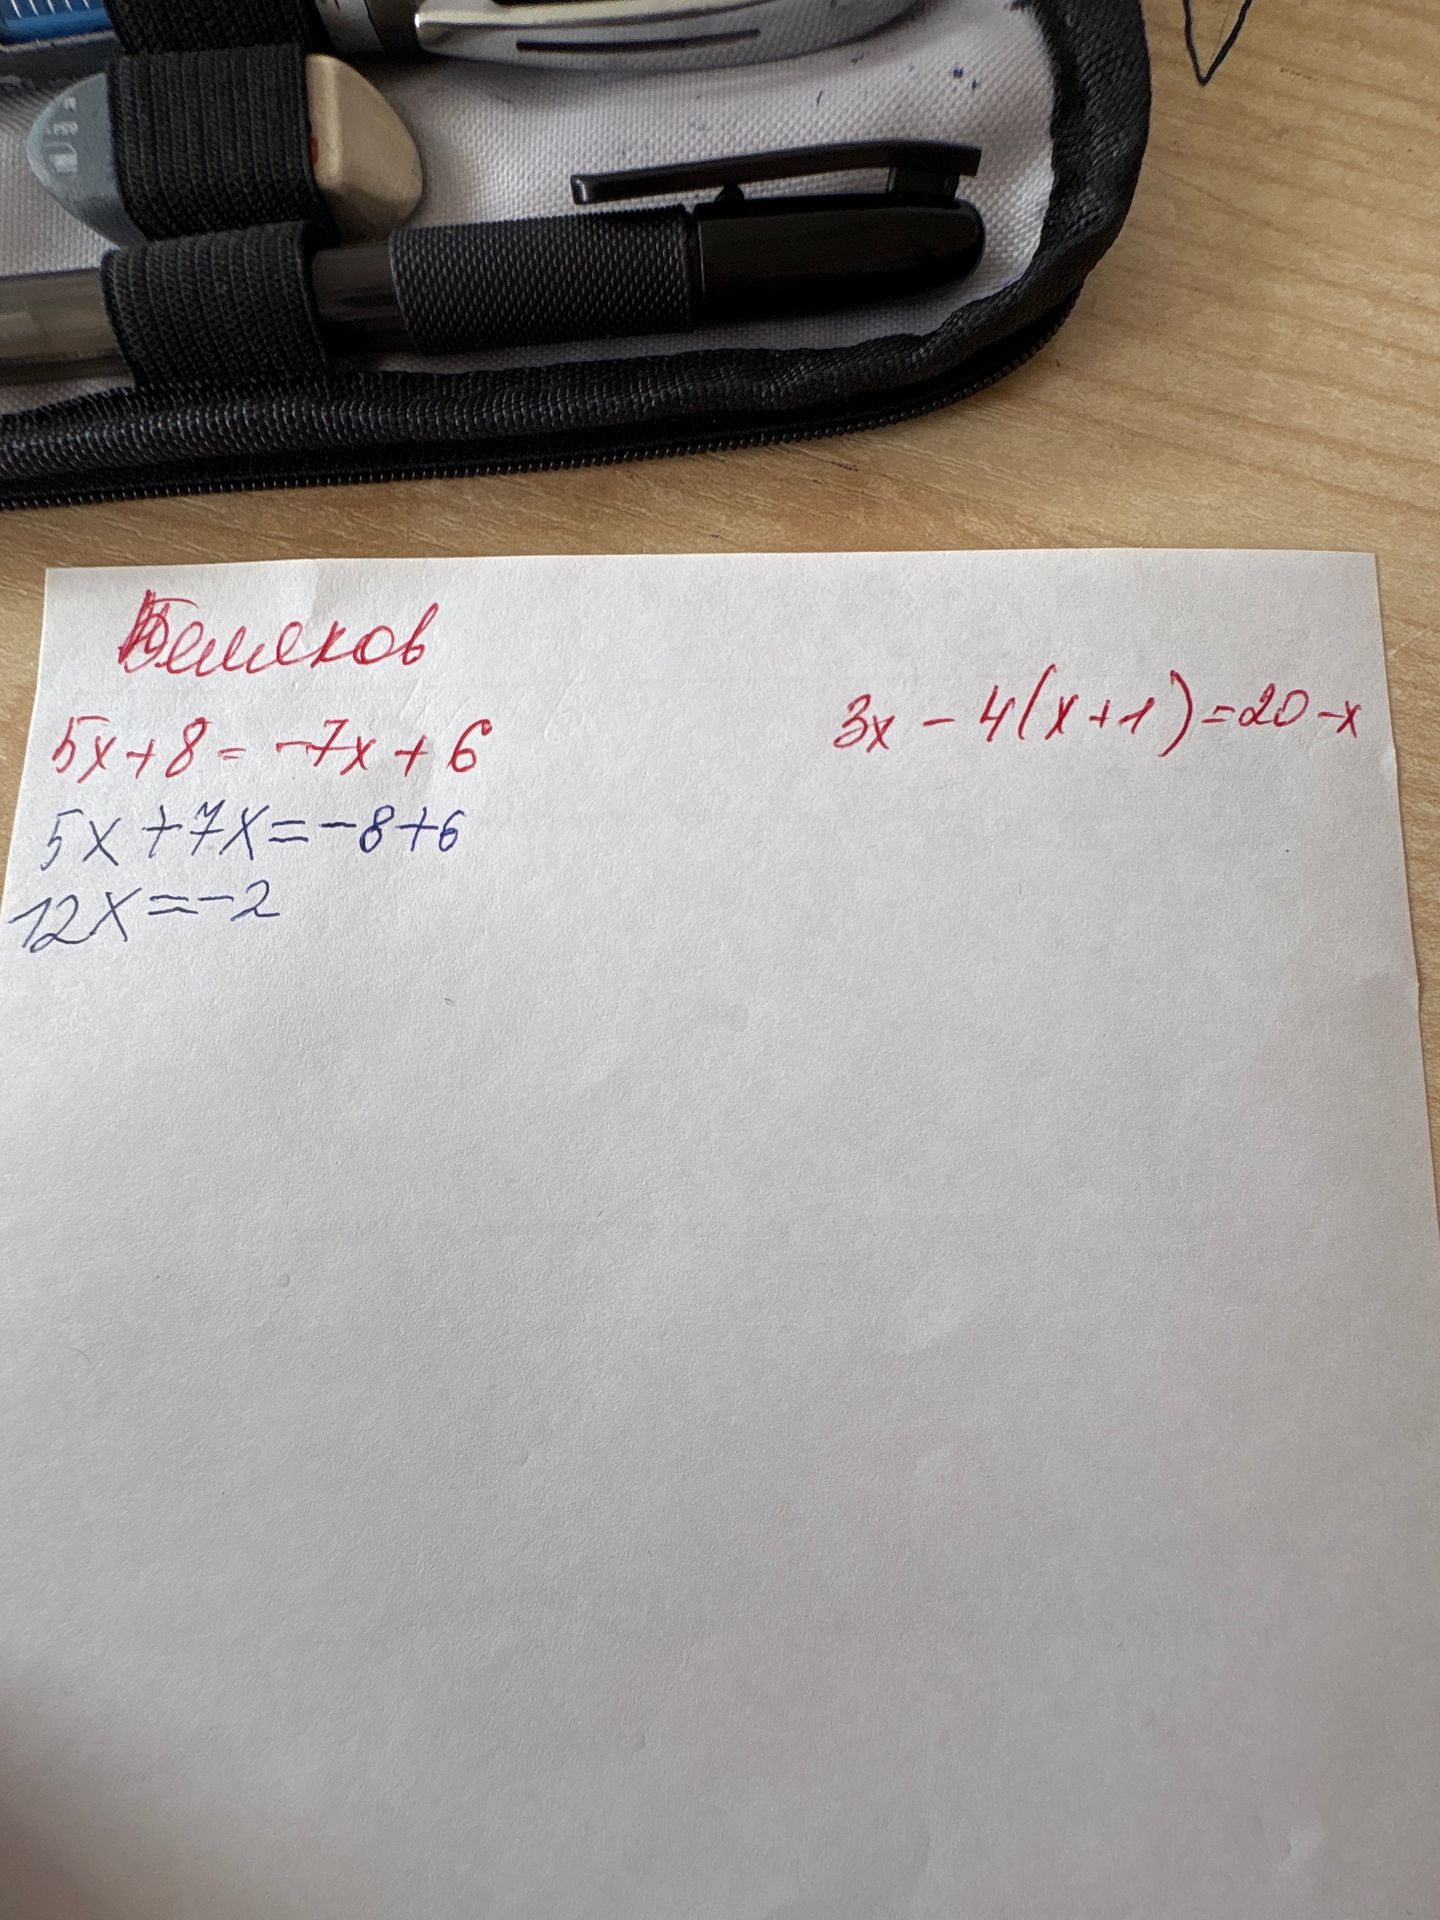 5x+8=-7x+6
5x+7x=-8+6
12x=-2
3x-4(x+1)=20-x